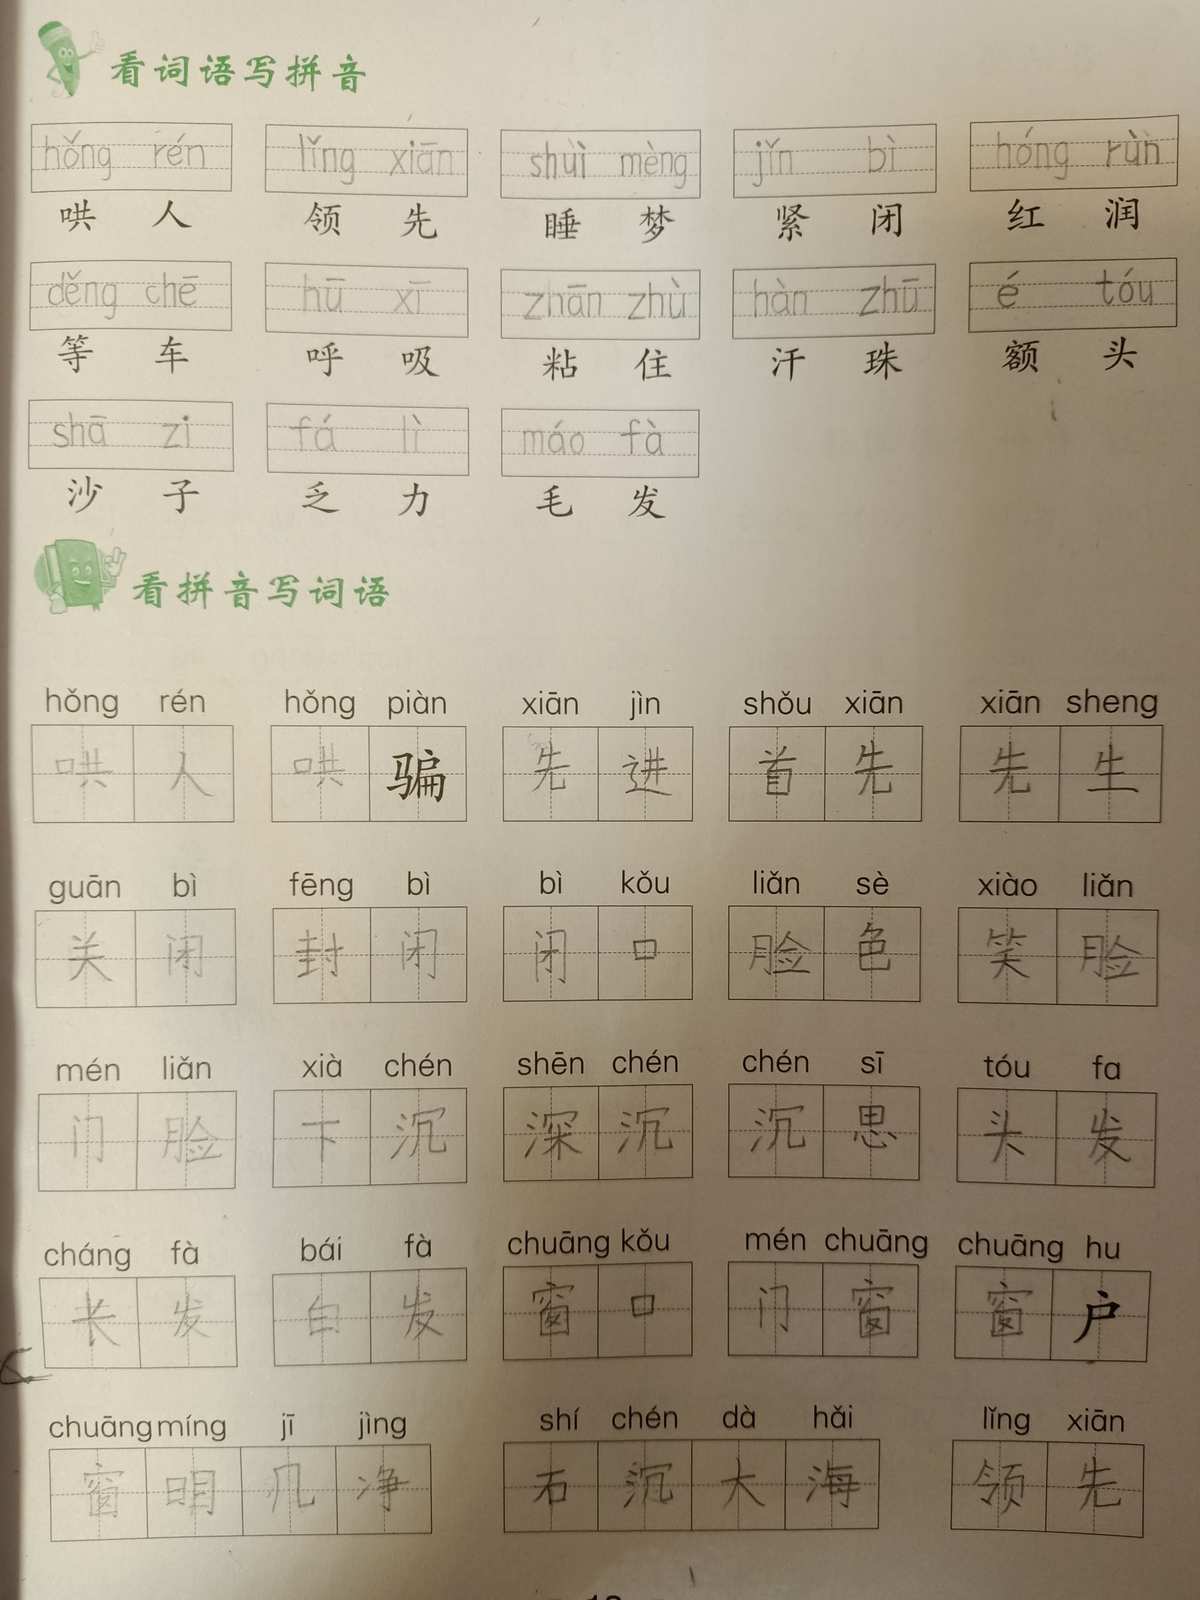 看词语写拼音
hǒng rén lǐng xiān shuì mèng jǐn bì hóng rùn
哄 人 领 先 睡 梦 紧 闭 红 润
děng chē hū xī zhān zhù hàn zhū é tóu
等 车 呼 吸 粘 住 汗 珠 额 头
shā zi fá lì máo fà
沙 子 乏 力 毛 发
看拼音写词语
hǒng rén hǒng piàn xiān jìn shǒu xiān xiān sheng
哄 人 哄 骗 先 进 首 先 先 生
guān bì fēng bì bì kǒu liǎn sè xiào liǎn
关 闭 封 闭 闭 口 脸 色 笑 脸
mén liǎn xià chén shēn chén chén sī tóu fa
门 脸 下 沉 深 沉 沉 思 头 发
cháng fà bái fà chuāng kǒu mén chuāng chuāng hu
长 发 白 发 窗 口 门 窗 窗 户
chuāng míng jī jìng shí chén dà hǎi lǐng xiān
窗 明 几 净 石 沉 大 海 领 先